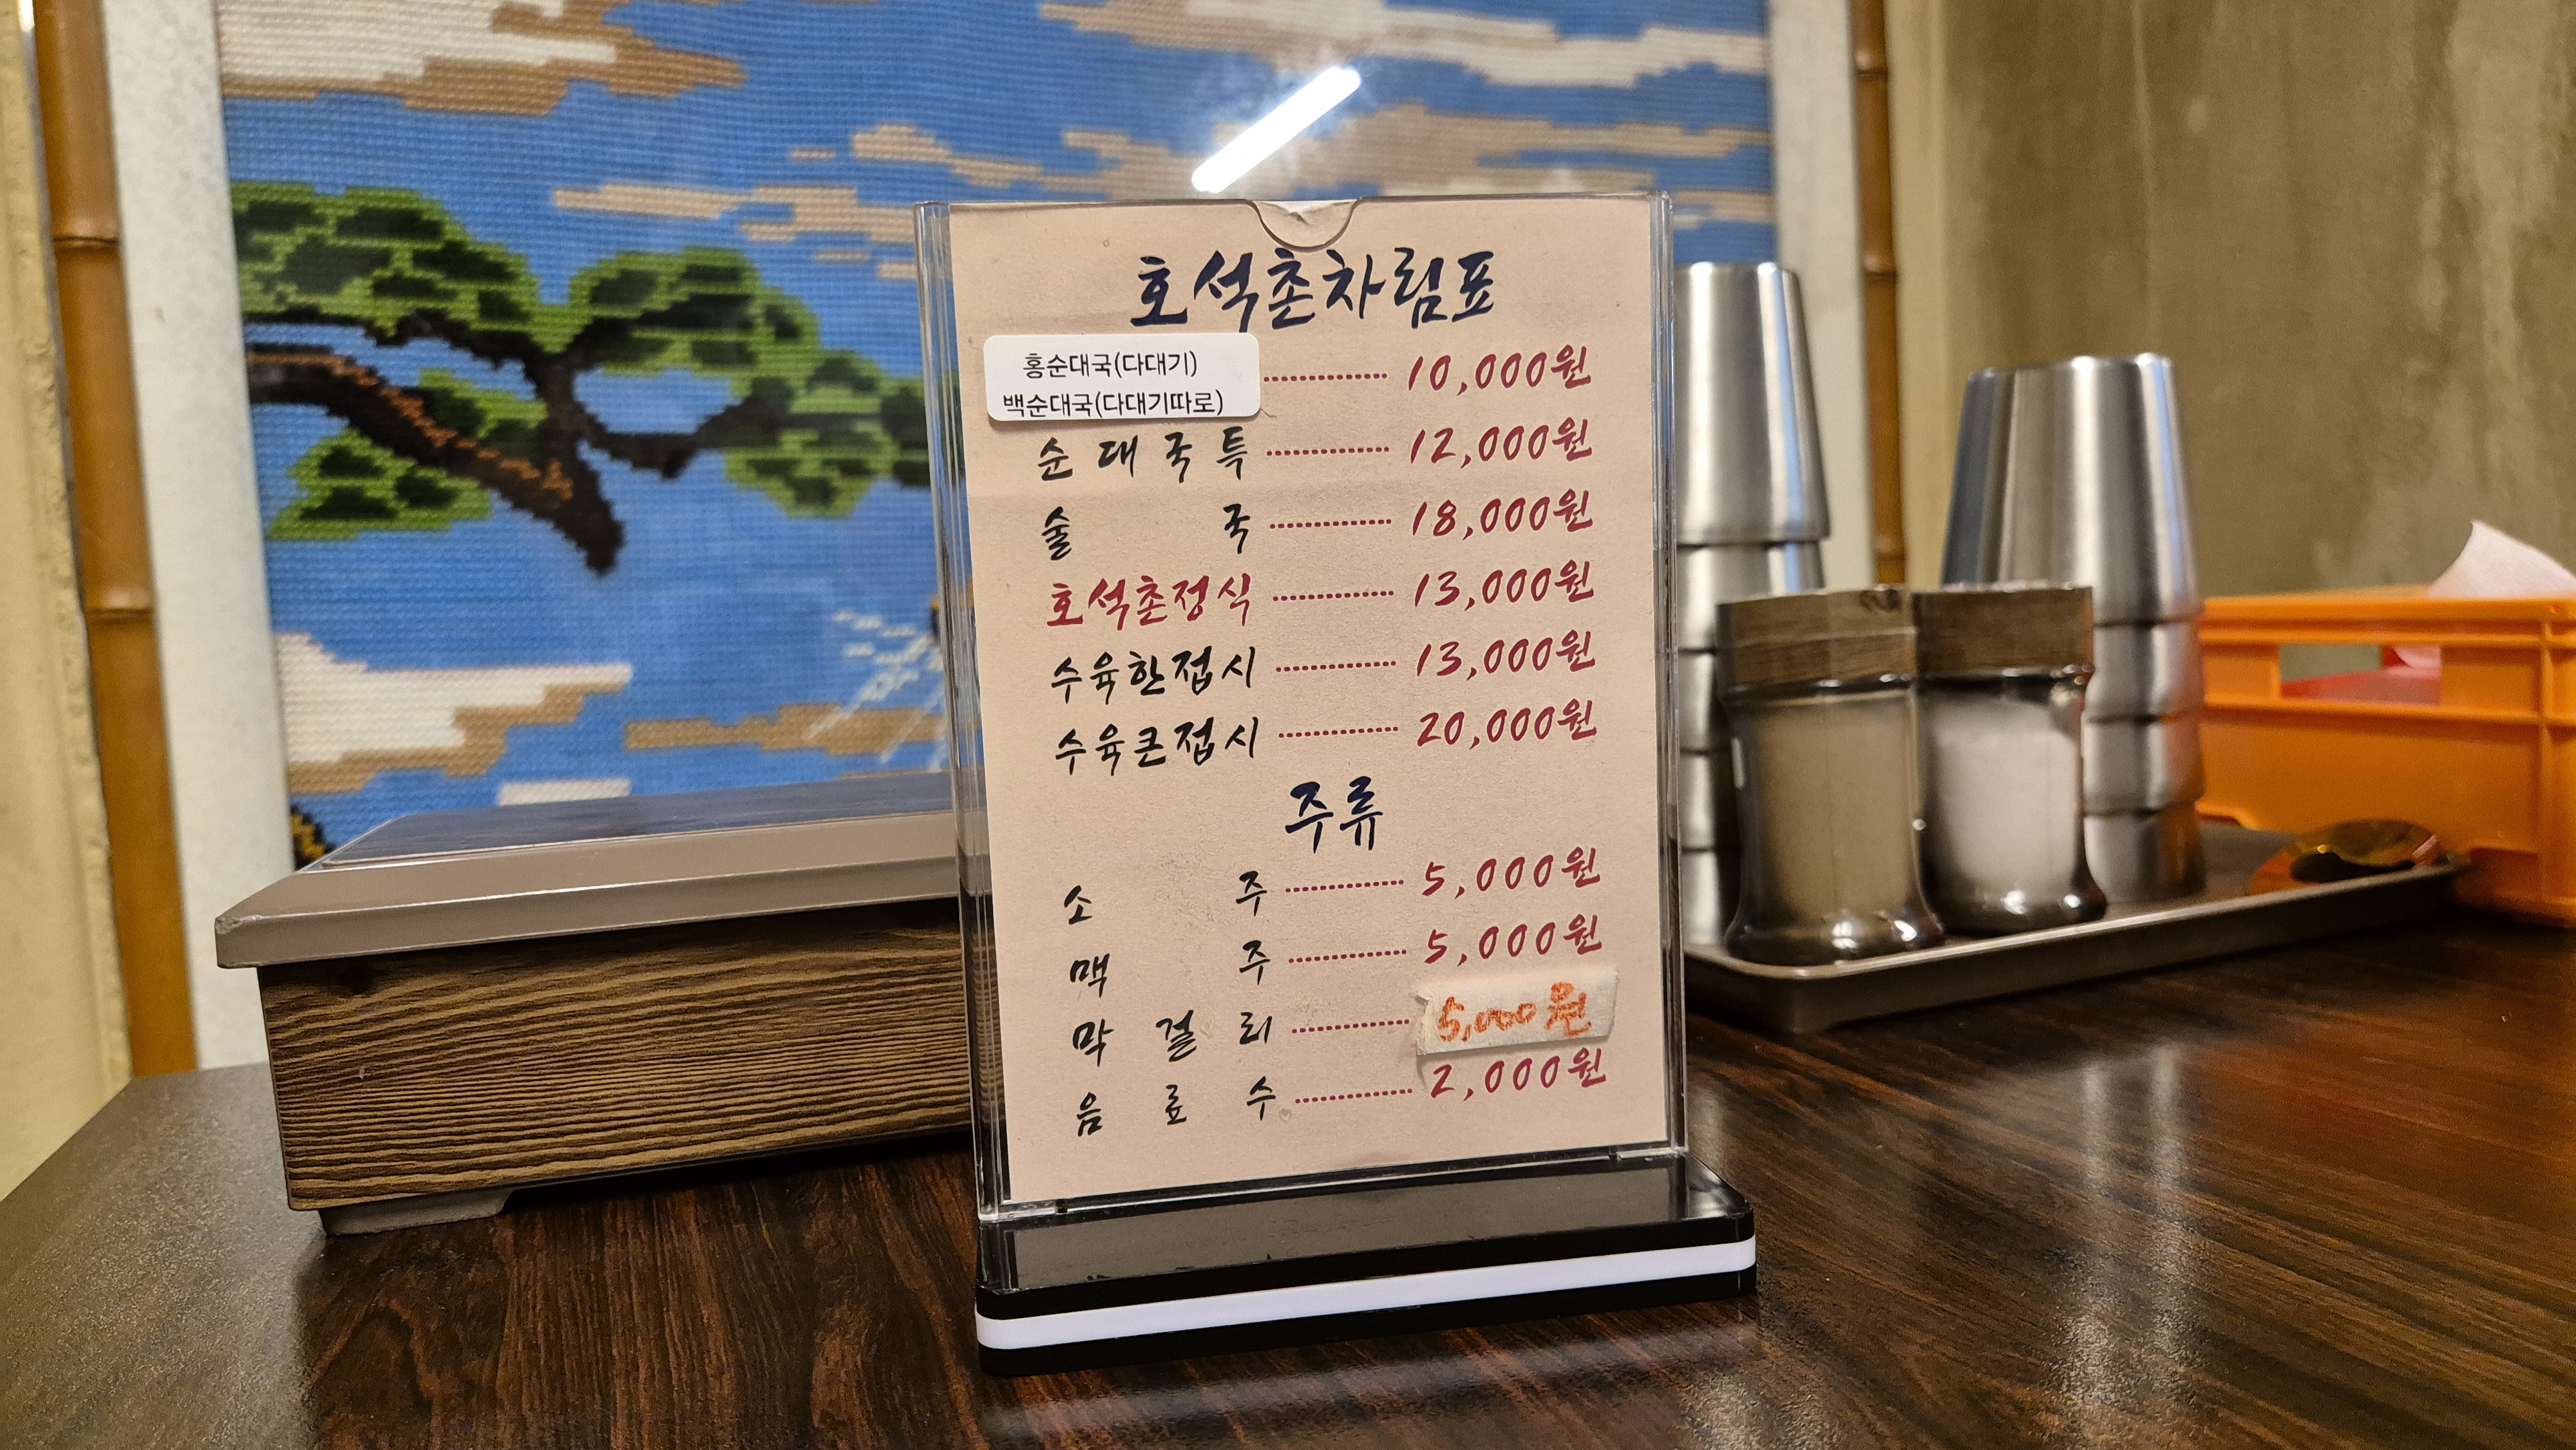 호석촌차림표
홍순대국(다대기)
백순대국(다대기따로) 10,000원
순대국특 12,000원
술국 18,000원
호석촌정식 13,000원
수육한접시 13,000원
수육큰접시 20,000원
주류
소주 5,000원
맥주 5,000원
막걸리 5,000원
음료수 2,000원